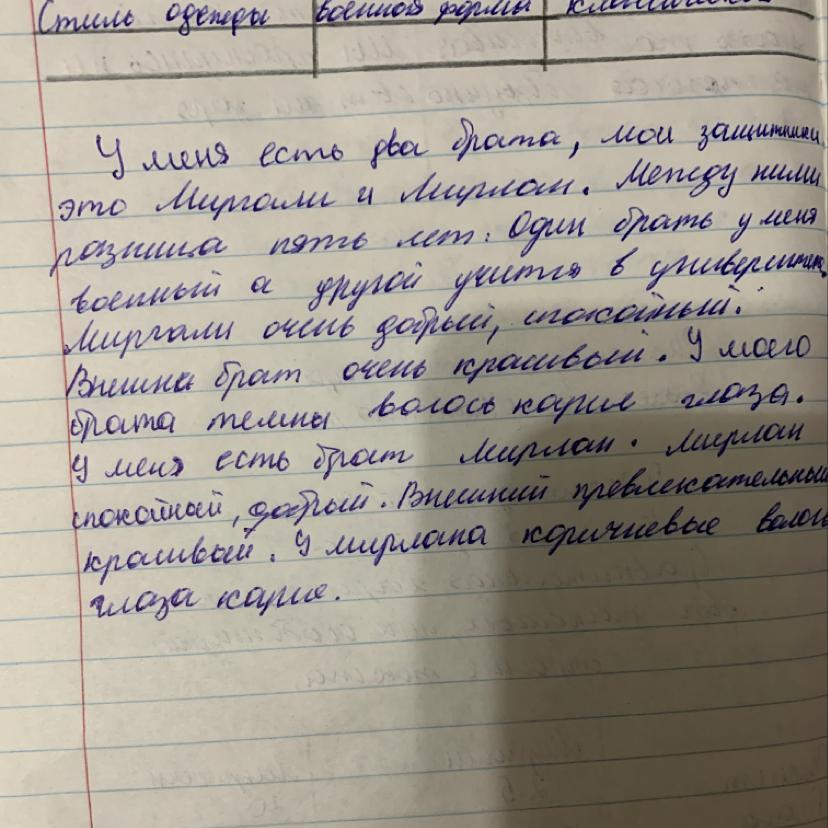 Стиль одежды военной формы классический
У меня есть два брата, мои защитники
это Миргали и Мирлан. Между ними
разница пять лет. Один брать у меня
военный а другой учится в университете.
Миргали очень добрый, спокойный.
Внешна брат очень красивый. У моего
брата темны волось карие глаза.
У меня есть брат Мирлан. Мирлан
спокойный, добрый. Внешний превлекательный
красивый. У мирлана коричневые волось
глаза карие.